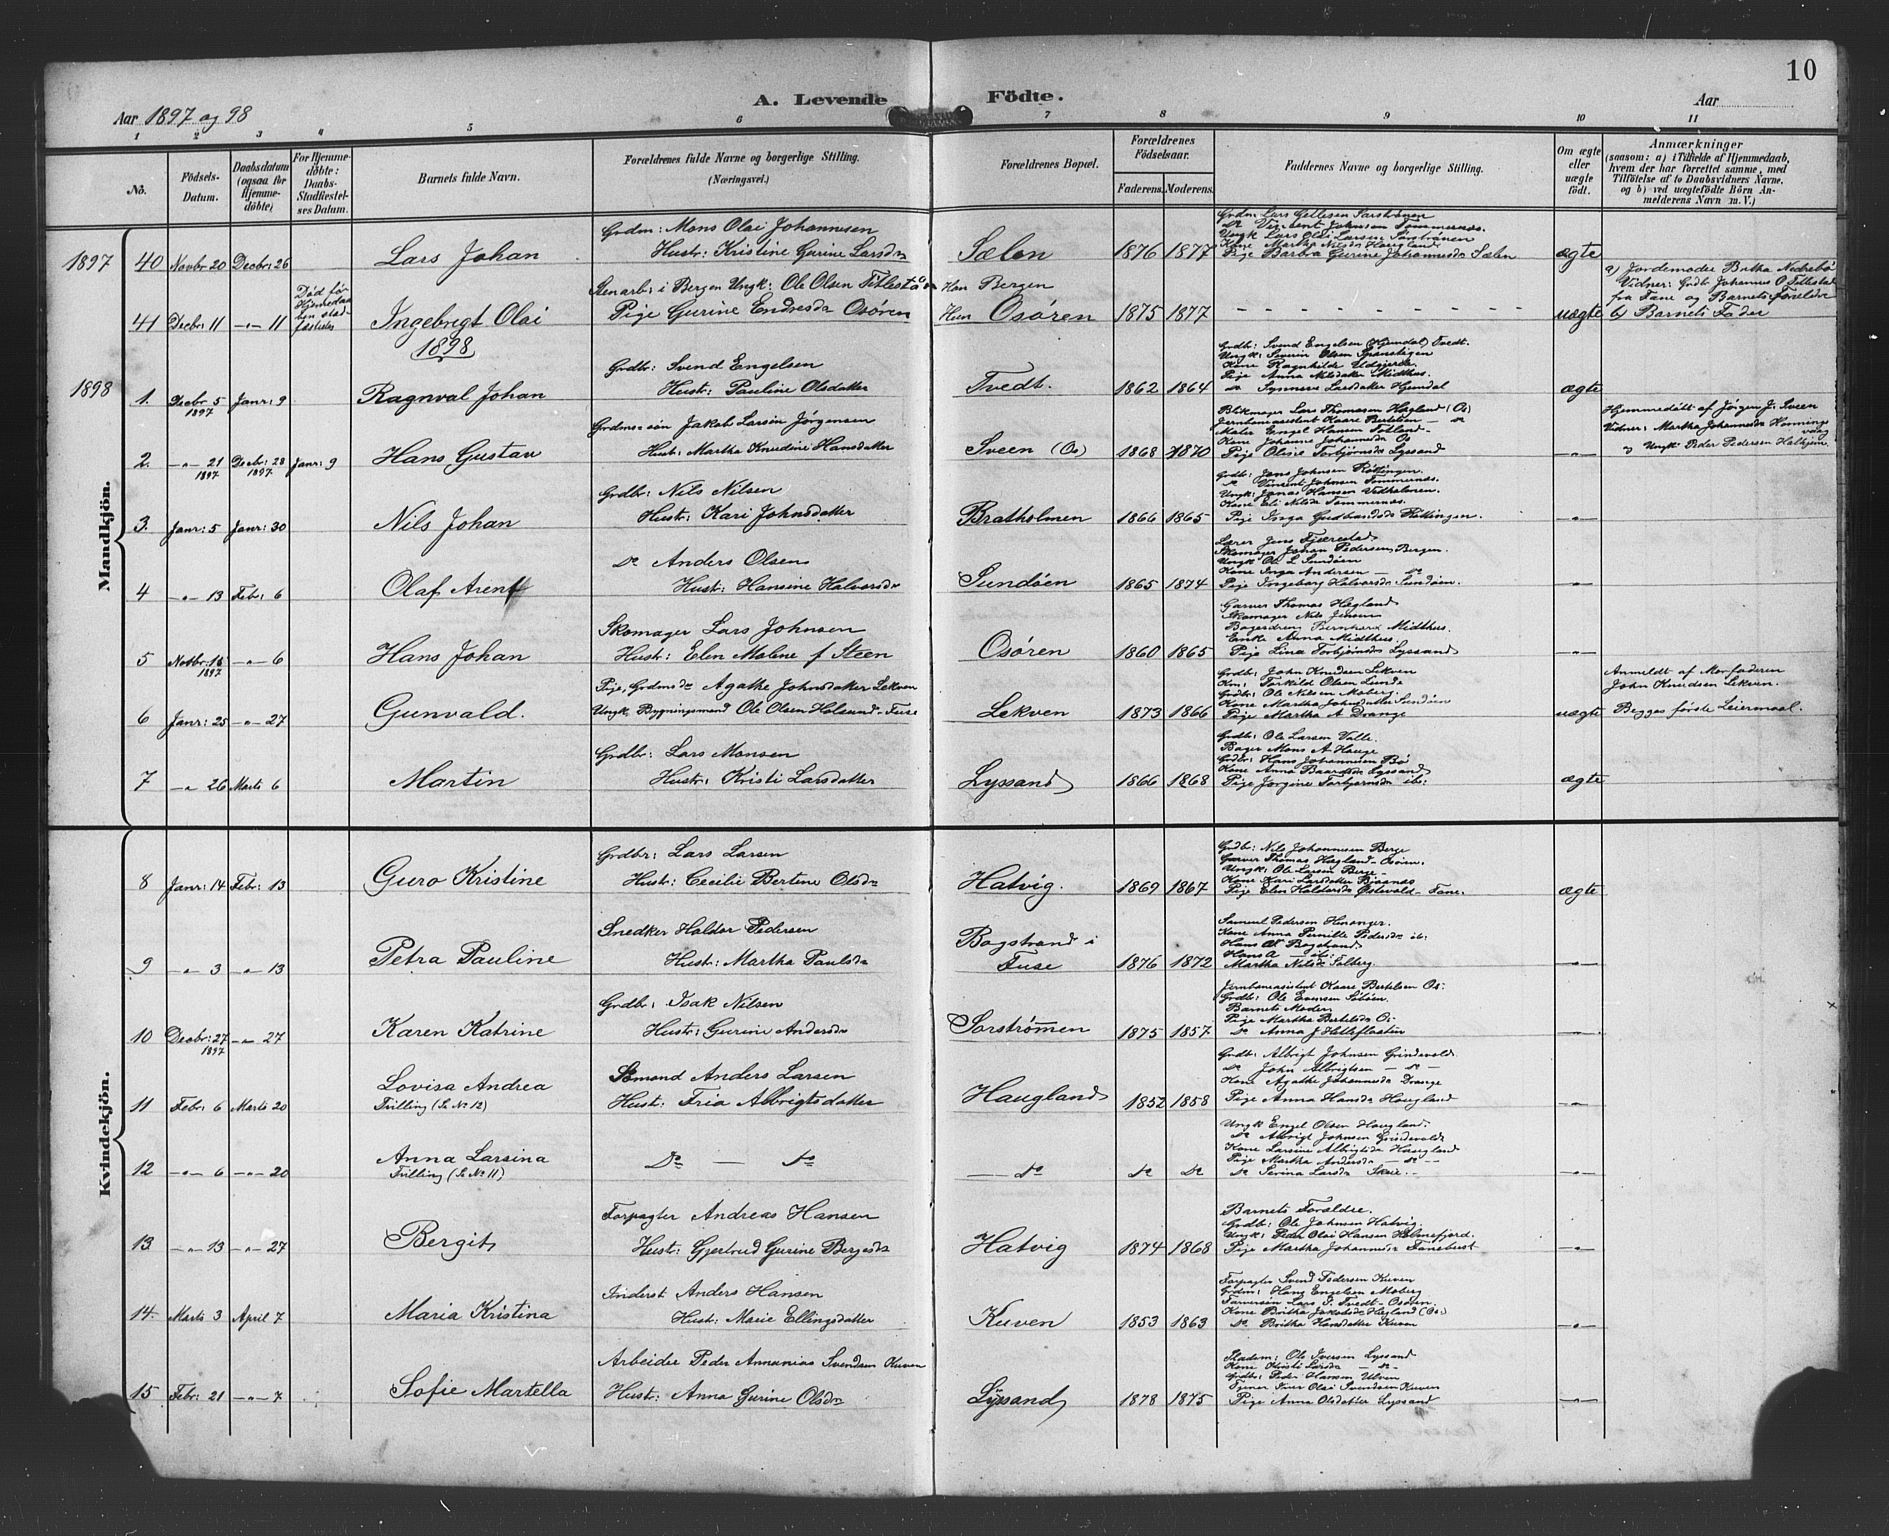 10
Aar 1897 og 98
A. Levende Födte.
Aar
1 2 3 4 5 6 7 8 9 10 11
No.
Födsels-Datum.
Daabsdatum (ogsaa for Hjemme-döbte)
For Hjemme-döbte: Daabs-Stadfæstel-ses Datum.
Barnets fulde Navn.
Forældrenes fulde Navne og borgerlige Stilling. (Næringsvei.)
Forældrenes Bopæl.
Forældrenes Födselsaar.
Faderens. Moderens.
Faddernes Navne og borgerlige Stilling.
Om ægte eller uægte födt.
Anmærkninger
(saasom: a) i Tilfælde af Hjemmedaab,
hvem der har forrettet samme, med
Tilföielse af to Daabsvidners Navne,
og b) ved uægtefödte Börn An-
melderens Navn m. V.)
Mandkjön.
1897 40 Novbr 20 Decbr: 26
Lars Johan
Grdm: Mons Olai Johannesen
Hustr: Kristine Gurine Larsdr
Sælen 1876 1877
Grdm Lars Gellesen Sørstrønen
Do Vincent Johnsen Sommernes.
Ungk Lars Olai Larsen Sørstrønen
Kone Martha Nilsdr Haugland
Pige Barbra Gurine Johannesdr Sælen
ægte
41 Decbr: 11 -"- 11
Død før Hjemmedaaben
Ingebrigt Olai
Stenarb: i Bergen Ungk: Ole Olsen Titlestad
Pige Gurine Endresdr Osøren
Han Bergen
Hun Osøren 1875 1877
uægte
a) Jordemoder Britha Nedrebø
Vidner: Grdbr Johannes O Titlestad
fra Fane og Barnets Forældre
b) Barnets Fader
1898
1898 1. Decbr 5 1897 Janr: 9
Ragnval Johan
Grdbr: Svend Engelsen
Hust: Pauline Olsdatter
Tvedt. 1862 1864
Grdbr: Svend Engelsen (Hjemdal) Tvedt.
Ungk: Severin Olsen Spanstigen
Kone Ragnhilde
Pige Anna Nilsdatter Midthus.
do Synneve Larsdatter Hjemdal
ægte
2. -"- 21 1897 Decbr: 28 1897 Janr: 9
Hans Gustav
Grdms-søn Jakob Larsen Jørgensen
Hust: Martha Knudine Hansdatter
Sveen (Os) 1868 1870
Blikmager Lars Thomasen Hegland (Os)
Jernbaneassistent Kaare Bertelsen - do
Maler Engel Hansen Søtland
Kone Johanne Johannesdr Os
Pige Olevie Torbjørnsdr Lyssand
-"-
Hjemmedøbt af Jørgen J. Sveen
Vidner: Martha Johannesdr Henningsvåg
o Ungk Peder Pedersen Halhjem.
3. Janr: 5 Janr: 30
Nils Johan
Grdbr: Nils Nilsen
Hustr: Kari Johnsdatter
Bratholmen 1866 1865
Grdbr: Jens Johnsen Røttingen.
do Vincent Johnsen Sommernes.
Ungk: Jonas Hansen Vedholmen.
Kone Eli Nilsdr Sommernes.
Pige Inga Gudbrandsdr Røttingen.
-"-
4 -"- 13 Febr: 6
Olaf Arent
do Anders Olsen
Hust: Hansine Halvorsdr
Sundøen 1865 1874
Lærer Jens Fjærestad
Skomager Johan Pedersen, Bergen.
Ungk Ole L Sundøen
Kone Inga Andersen - do
Pige Ingeborg Halvorsdr Sundøen.
-"-
5 Novbr: 16 1897 -"- 6
Hans Johan
Skomager Lars Johnsen
Hust: Elen Maline f Steen
Osøren 1860 1865
Garver Thomas Hegland
Skomager Nils Jensen
Bagerdreng Bernhard Midthus.
Enke Anna Midthus.
Pige Lina Torbjørnsdr Lyssand
-"-
6 Janr: 25 -"- 27
Gunvald.
Pige, Grdmsdr Agathe Johnsdatter Lekven
Ungk, Bygningsmand Ole Olsen Holsund - Fuse
Lekven 1873 1866
Grdbr: John Knudsen Lekven
Km: Torkild Olsen Lunde
Grdbr: Ole Nilsen Moberg.
Kone Martha Johnsdatter Sundøen
Pige Martha A Drange
uægte
Anmeldt af Morfaderen
John Knudsen Lekven.
Begges første Leiermaal.
7 -"- 26 Marts 6
Martin
Grdbr: Lars Monsen
Hust: Kristi Larsdatter
Lyssand 1866 1868
Grdbr: Ole Larsen Valle.
Bager Mons A Hauge
Grdbr: Hans Johannesen Bø
Kone Anna Baardsdr Lyssand
Pige Jørgine Torbjørnsdr ib:
ægte
Kvindekjön.
8 Janr: 14 Febr: 13
Guro Kristine
Grdbr: Lars Larsen
Hust: Cecilie Bertine Olsdr
Hatvig. 1869 1867
Grdbr: Nils Johannesen Berge
Garver Thomas Hegland - Osøren.
Ungk: Ole Larsen Berge
Kone Kari Larsdatter Bjaanæs
Pige Elen Haldorsdr Østevold - Fane.
ægte
9 -"- 3 -"- 13
Petra Pauline
Snedker Haldor Pedersen
Hust: Martha Paulsdr
Bogstrand i
Fuse 1876 1872
Samuel Pedersen Henanger.
Kone Anna Pernille Pedersdr ib:
Hans Bogstrand
Hans A - ib:
Martha Nilsdr Solberg.
-"-
10 Decbr: 27 1897 -"- 27
Karen Katrine
Grdbr: Isak Nilsen
Hustr: Gurine Andersdr
Sørstrømmen 1875 1857
Jernbaneassistent Kaare Bertelsen Os:
Grdbr: Ole Evensen Søbøen.
Barnets Moder
Pige Martha Bertelsdr Os
do Anna J Hetlefloaten
-"-
11 Febr: 6 Marts 20
Lovisa Andrea
Tvilling (Se No 12)
Smand Anders Larsen
Hust: Fria Albrigtsdatter
Haugland 1852 1858
Grdb: Albrigt Johnsen Grindevold.
do John Albrigtsen - do -
Kone Agathe Johannesdr Drange
Pige Anna Hansdr Haugland
-"-
12 -"- 6 -"- 20
Anna Larsina
Tvilling (Se No 11)
Do - do
- do do do
Ungk Engel Olsen Haugland.
do Albrigt Johnsen Grindevold
Kone Larsine Albrigtsdr Haugland
Pige Martha Andersdr - do -
do Serina Larsdr Skeie.
-"-
13. -"- 13 -"- 27
Bergit
Forpagter Andreas Hansen
Hust: Gjertrud Gurine Bergesdr
Hatvig 1874 1868
Barnets Forældre.
Grdb: Ole Johnsen Hatvig.
Ungk: Peder Olai Hansen Holmefjord.
Pige Martha Johannesdr Fanebust
-"-
14. Marts 3 April 7
Maria Kristina
Inderst Anders Hansen
Hust: Marie Ellingsdatter
Kuven 1853 1863
Forpagter Svend Pedersen Kuven
Grdm: Hans Engelsen Moberg
Farversøn Lars P. Tvedt - Osøren.
Kone Britha Jakobsdr Hegland (Os.)
do Britha Hansdatter Kuven
-"-
15 Febr: 21 -"- 7
Sofie Martella
Arbeider Peder Annanias Svendsen Kuven
Hust: Anna Gurine Olsdr
Lyssand 1878 1875
Pladsm: Ole Iversen Lyssand
Kone Kristi Larsdr - do -
Grdbr: Peder Hansen Ulven
Tjener Iver Olai Svendsen Kuven
Pige Anna Olsdatter Lyssand
-"-